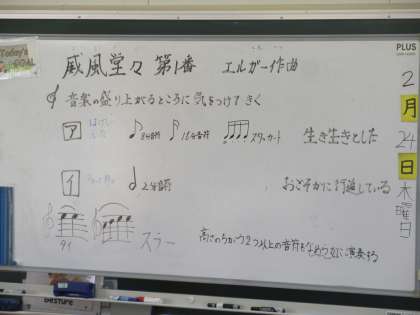 Today's
GOAL
威風堂々 第1番 エルガー作曲
音楽の盛り上がるところに気をつけてきく
ア 8分音符 16分音符 スタッカート 生き生きとした
イ 2分音符 おごそかに行進している
タイ スラー
高さのちがう2つ以上の音符をなめらかに演奏する
PLUS
2月24日木曜日